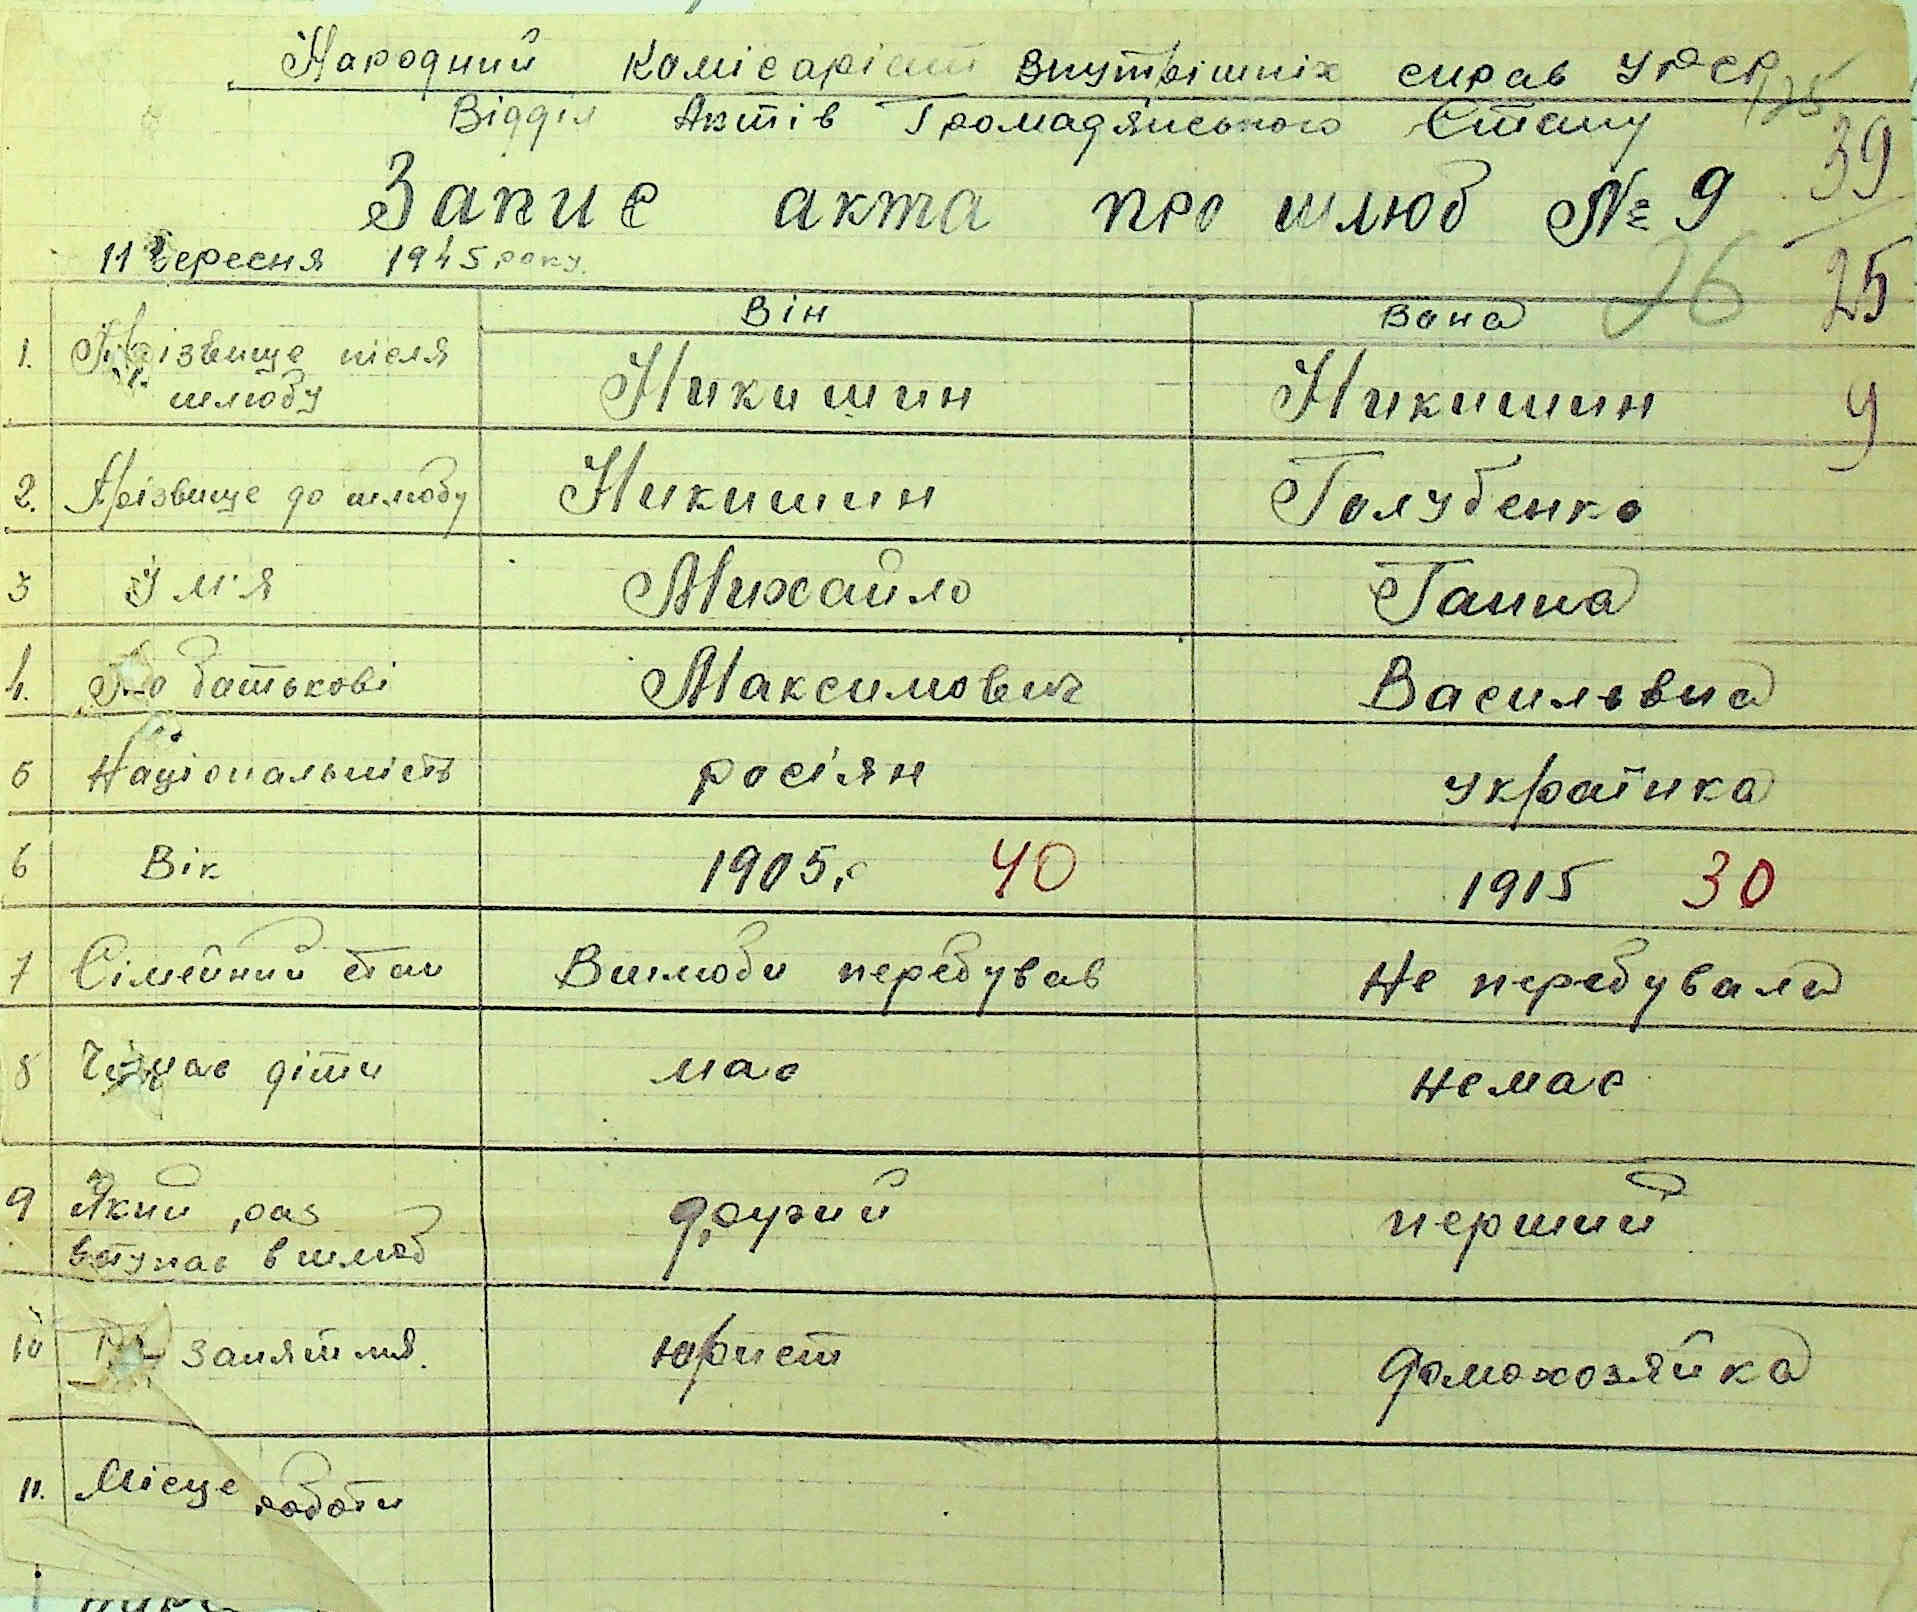 Народний Комісаріат Внутрішніх справ УРСР
Відділ Актів Громадянського Стану
125
39
Запис акта про шлюб № 9
26
25
11 Вересня 1945 року.
Він Вона
1. Прізвище після шлюбу Никишин Никишин 9
2. Прізвище до шлюбу Никишин Голубенко
3 Ім'я Михайло Ганна
4. По батькові Максимович Васильвна
5 Національність росіян українка
6 Вік 1905 40 1915 30
7 Сімейний стан Вшлюби перебував Не перебувала
8 Чи має діти має немає
9 Який раз вступає в шлюб другий перший
10 заняття. юрист домохозяйка
11. Місце роботи